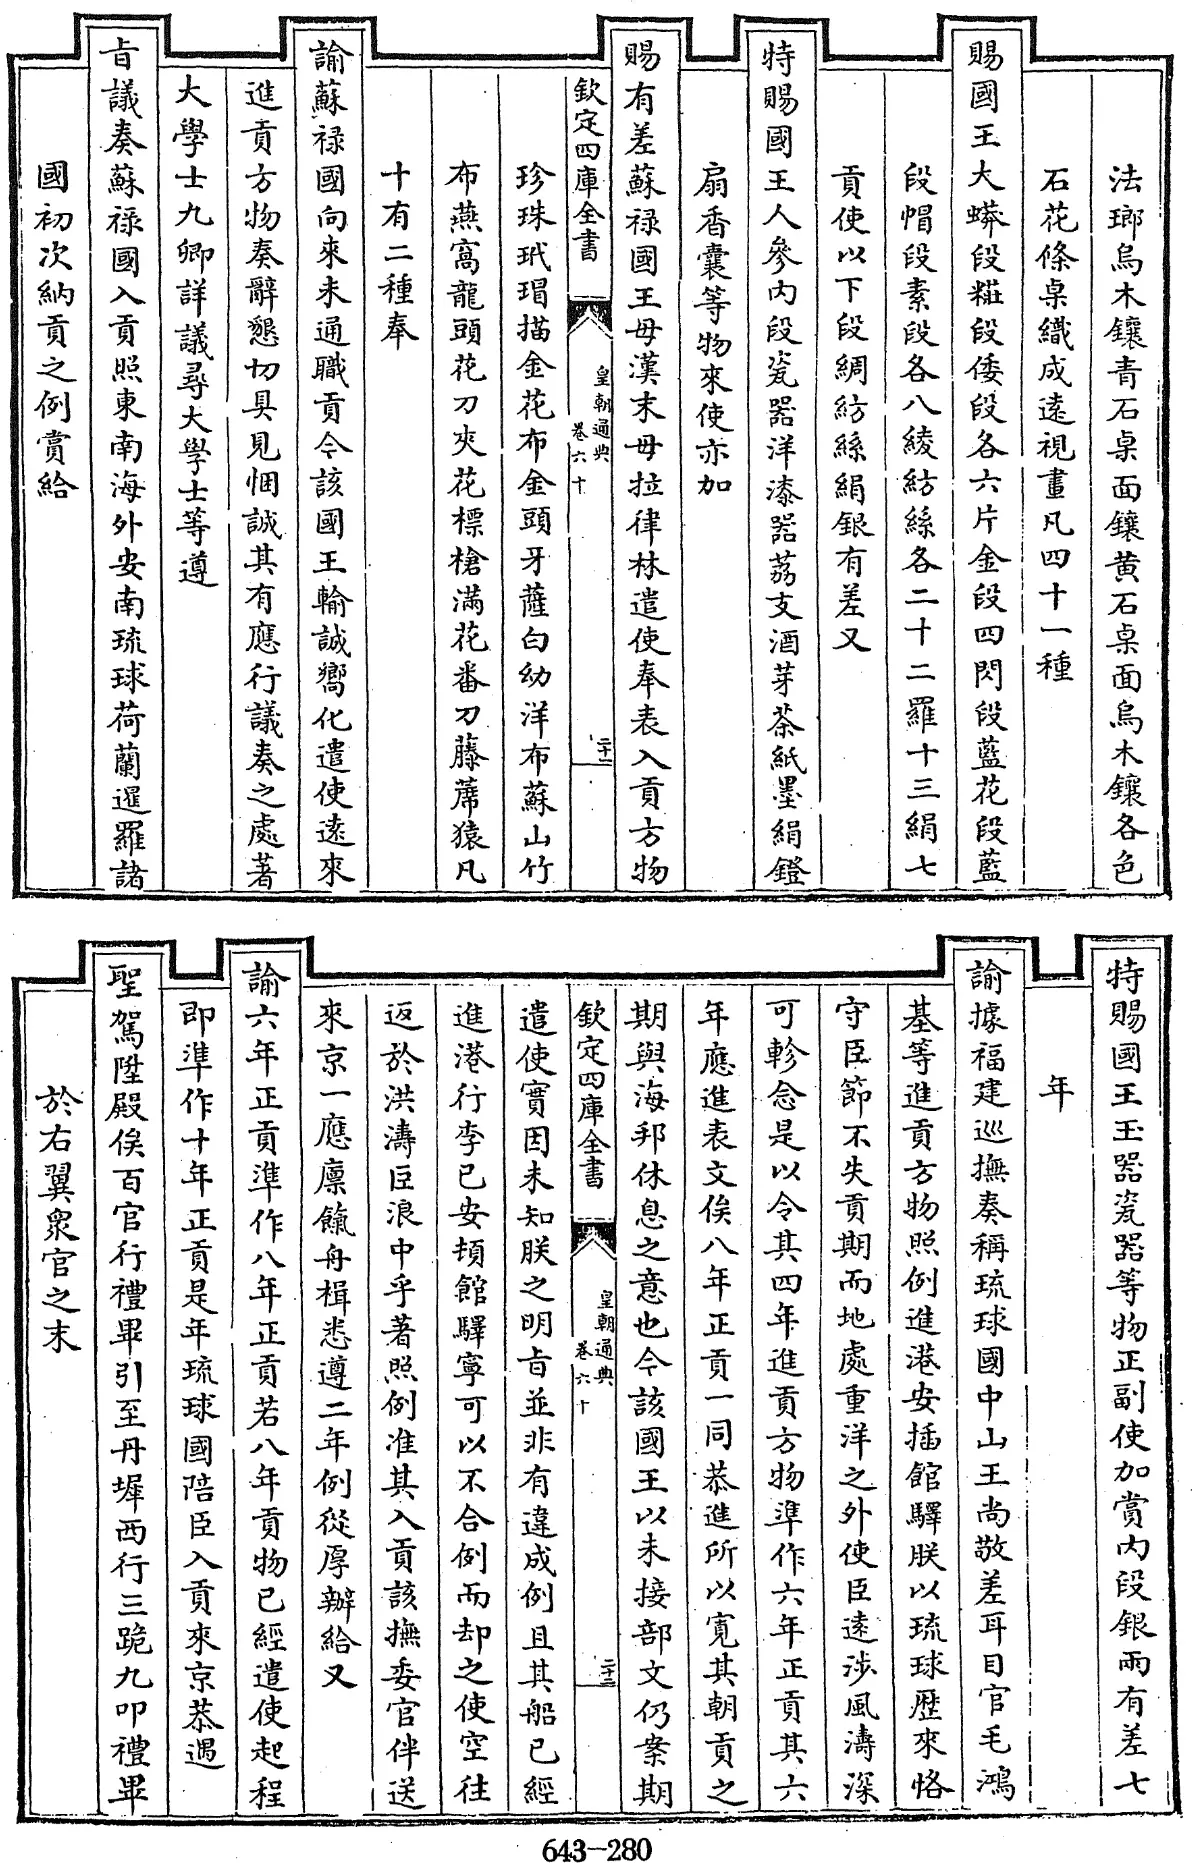 法瑯烏木鑲青石桌面鑲黄石桌面烏木鑲各色
石花條桌織成逺視畫凡四十一種
賜國王大蟒段糚段倭段各六片金段四閃段藍花段藍
段帽段素段各八綾紡絲各二十二羅十三絹七
貢使以下段綢紡絲絹銀有差又
特賜國王人參内段瓷器洋漆器荔支酒芽茶紙墨絹鐙
扇香囊等物來使亦加
賜有差蘇禄國王母漢末母拉律林遣使奉表入貢方物
欽定四庫全書
皇朝通典
卷六十
二十二
珍珠玳瑁描金花布金頭牙薩白幼洋布蘇山竹
布燕窩龍頭花刀夾花標槍滿花番刀藤蓆猿凡
十有二種奉
諭蘇禄國向來未通職貢今該國王輸誠嚮化遣使逺來
進貢方物奏辭懇切具見悃誠其有應行議奏之處著
大學士九卿詳議尋大學士等遵
㫖議奏蘇禄國入貢照東南海外安南琉球荷蘭暹羅諸
國初次納貢之例賞給
特賜國王玉器瓷器等物正副使加賞内段銀兩有差七
年
諭據福建巡撫奏稱琉球國中山王尚敬差耳目官毛鴻
基等進貢方物照例進港安插館驛朕以琉球歴來恪
守臣節不失貢期而地處重洋之外使臣逺涉風濤深
可軫念是以令其四年進貢方物準作六年正貢其六
年應進表文俟八年正貢一同恭進所以寛其朝貢之
期與海邦休息之意也今該國王以未接部文仍案期
欽定四庫全書
皇朝通典
卷六十
二十二
遣使實因未知朕之明㫖並非有違成例且其船已經
進港行李已安頓館驛寧可以不合例而却之使空往
返於洪濤巨浪中乎著照例准其入貢該撫委官伴送
來京一應廪餼舟楫悉遵二年例從厚辦給又
諭六年正貢準作八年正貢若八年貢物已經遣使起程
即準作十年正貢是年琉球國陪臣入貢來京恭遇
聖駕陞殿俟百官行禮畢引至丹墀西行三跪九叩禮畢
於右翼衆官之末
643-280